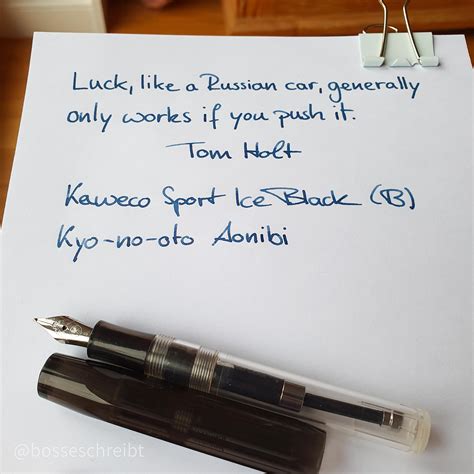 Luck, like a Russian car, generally
only works if you push it.
Tom Holt
Kaweco Sport Ice Black (B)
Kyo-no-oto Aonibi
@bosseschreibt